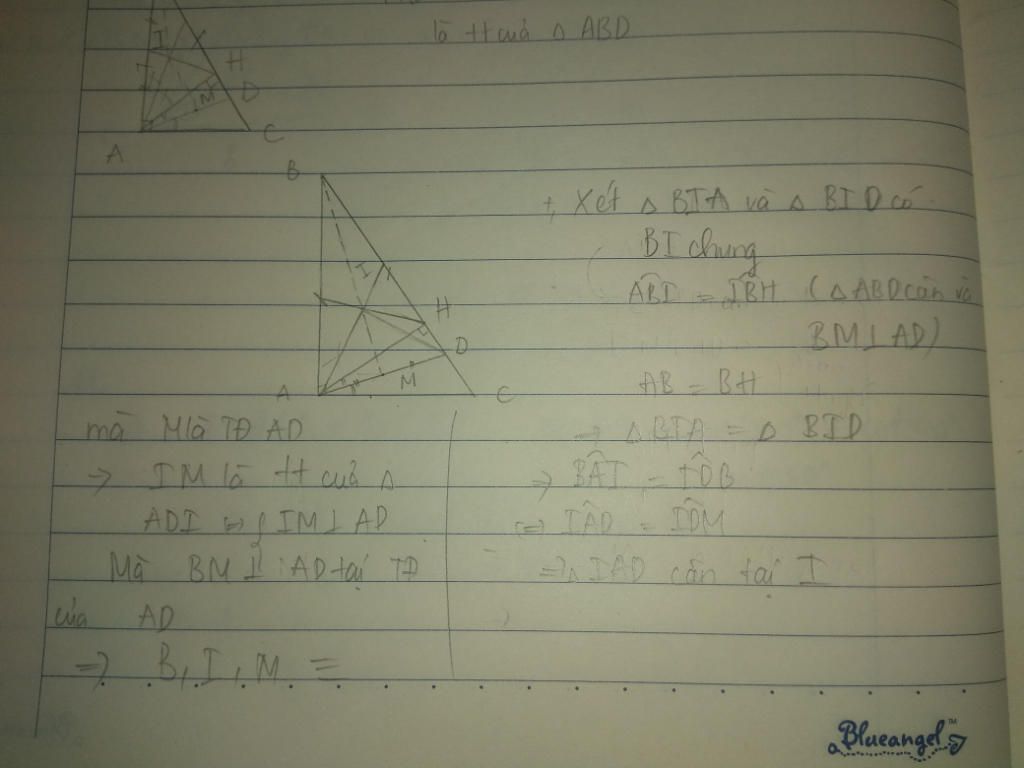 là tt của △ ABD
I
H
M
D
A
C
B
I
H
D
M
A
C
+, Xét △ BIA và △ BID có
BI chung
ABI = IBH (△ ABD cân và
BM⊥AD)
AB = BH
→ △ BIA = △ BID
⇒ BAI = IDB
⇔ IAD = IDM
⇒ △ IAD cân tại I
mà M là TĐ AD
→ IM là tt của △
ADI ⇔ IM⊥AD
Mà BM ⊥ AD tại TĐ
của AD
⇒ B, I, M =
Blueangel™